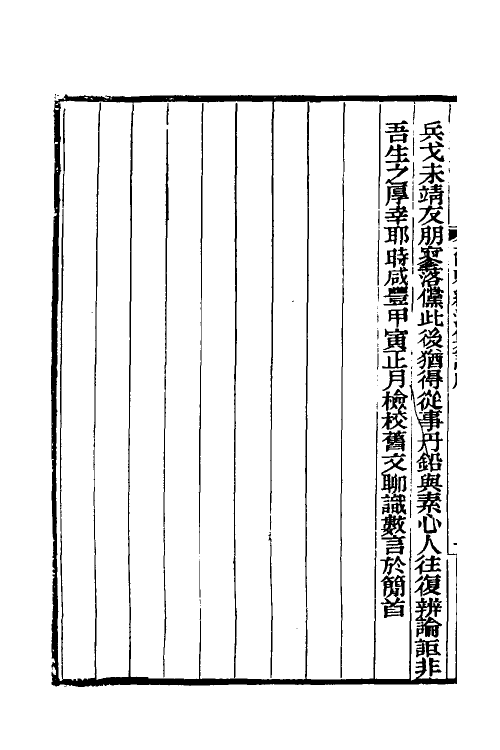 兵戈未靖友朋寥落儻此後猶得從事丹鉛與素心人往復辨論詎非
吾生之厚幸耶時咸豐甲寅正月檢校舊文聊識數言於簡首